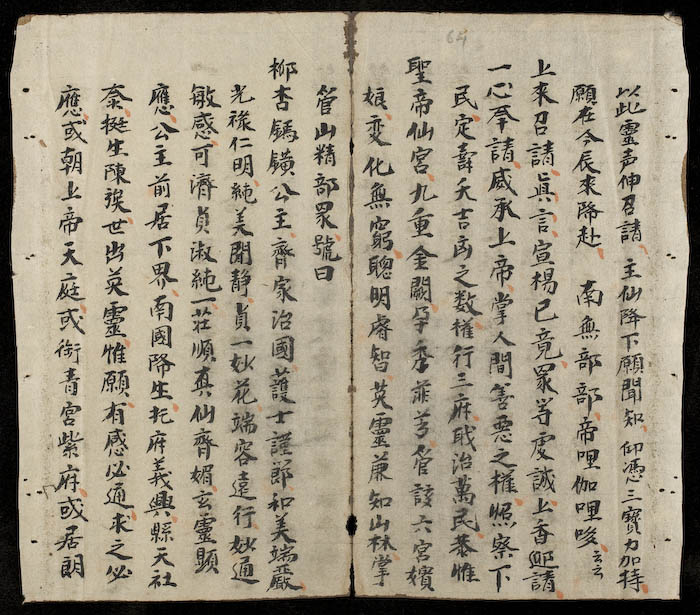 以此靈声伸召請主仙降下願聞知仰憑三寶力加持
願在今辰來降赴 南無部部帝哩伽哩唆云云
上來召請真言宣楊已竟眾等虔誠上香迎請
一心奉請威承上帝掌人間善惡之權照察下
民定壽夭吉凶之数權行三府職治萬民恭惟
聖帝仙宮九重金闕孕秀菲芳管該六宮嬪
娘变化無窮聰明睿智英靈兼知山林掌
管山精部眾號曰
柳杏鎢鐄公主齊家治國護士謹節和美端嚴
光祿仁明純美閑靜貞一妙花端容遠行妙通
敏感可濟貞淑純一荘順真仙齊媚玄靈顯
應公主前居下界南國降生北府義興縣天社
奈挺生陳族世出英靈惟願有感必通求之必
應或朝上帝天庭或衛青宮紫府或居朗